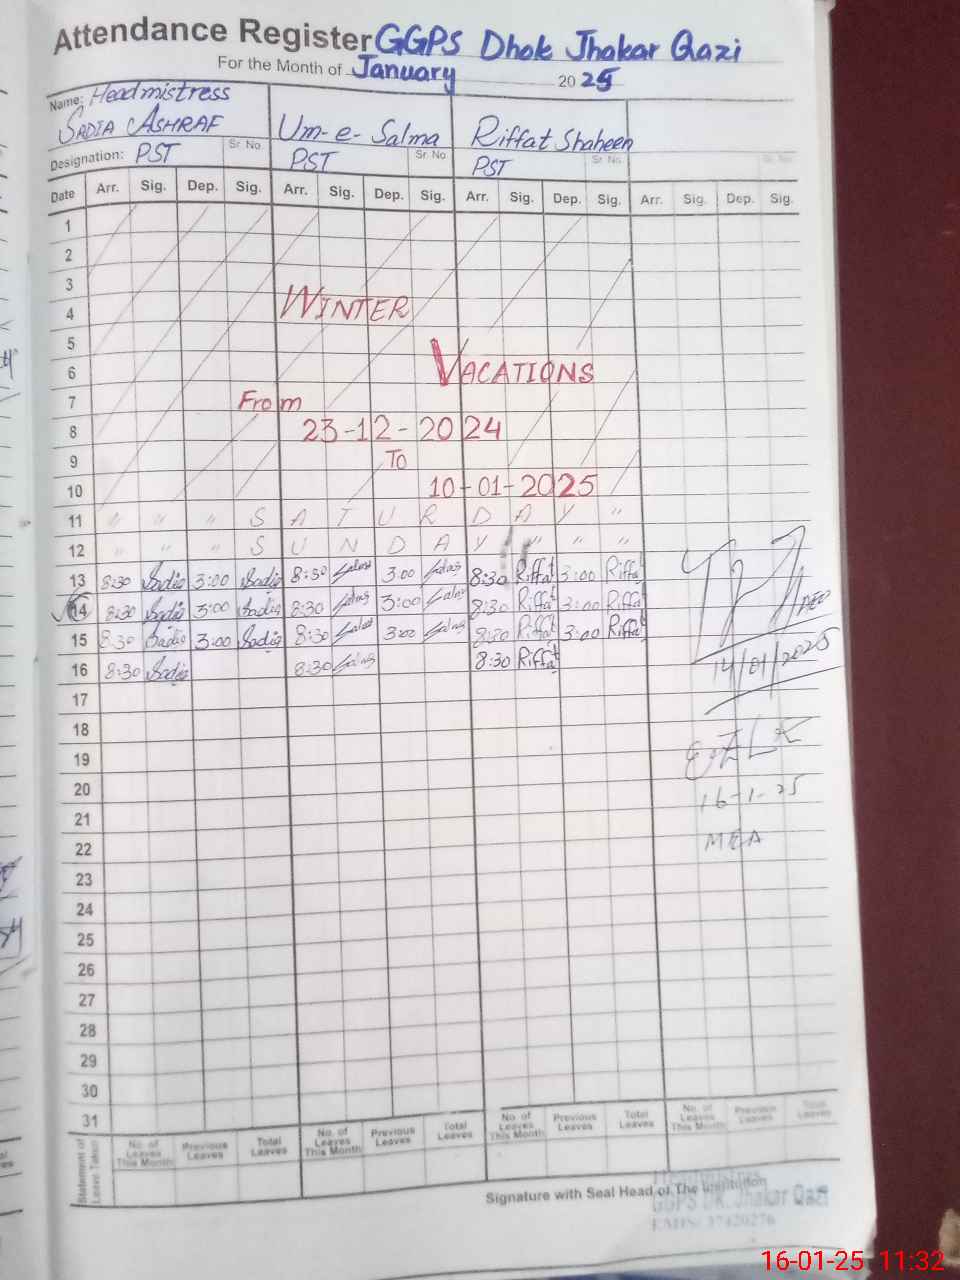 Attendance Register GGPS Dhok Jhakar Qazi
For the Month of January 2025
Name: Headmistress
SADIA ASHRAF Um-e-Salma Riffat Shaheen
Designation: PST Sr. No. PST Sr. No. PST Sr. No. Sr. No.
Date Arr. Sig. Dep. Sig. Arr. Sig. Dep. Sig. Arr. Sig. Dep. Sig. Arr. Sig. Dep. Sig.
1
2
3
4 WINTER
5
6 VACATIONS
7 From
8 23-12-2024
9 To
10 10-01-2025
11 " " " S A T U R D A Y "
12 " " " S U N D A Y " " "
13 8:30 Sadia 3:00 Sadia 8:30 Salma 3:00 Salma 8:30 Riffat 3:00 Riffat
14 8:30 Sadia 3:00 Sadia 8:30 Salma 3:00 Salma 8:30 Riffat 3:00 Riffat
15 8:30 Sadia 3:00 Sadia 8:30 Salma 3:00 Salma 8:30 Riffat 3:00 Riffat
16 8:30 Sadia 8:30 Salma 8:30 Riffat
14/01/2025
17
18
19
20 16-1-25
21
22 MEA
23
24
25
26
27
28
29
30
31
Statement of Leave Taken No. of Leaves This Month Previous Leaves Total Leaves No. of Leaves This Month Previous Leaves Total Leaves No. of Leaves This Month Previous Leaves Total Leaves No. of Leaves This Month Previous Leaves Total Leaves
Signature with Seal Head of The Institution
GGPS DK. Jhakar Qazi
EMIS: 37420276
16-01-25 11:32